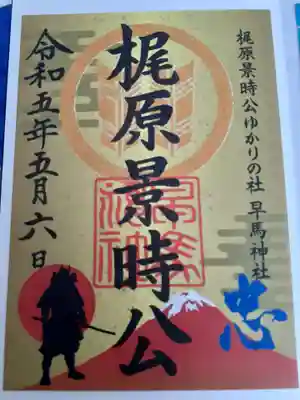 梶原景時公ゆかりの社 早馬神社
梶原景時公
令和五年五月六日
忠
早馬神社